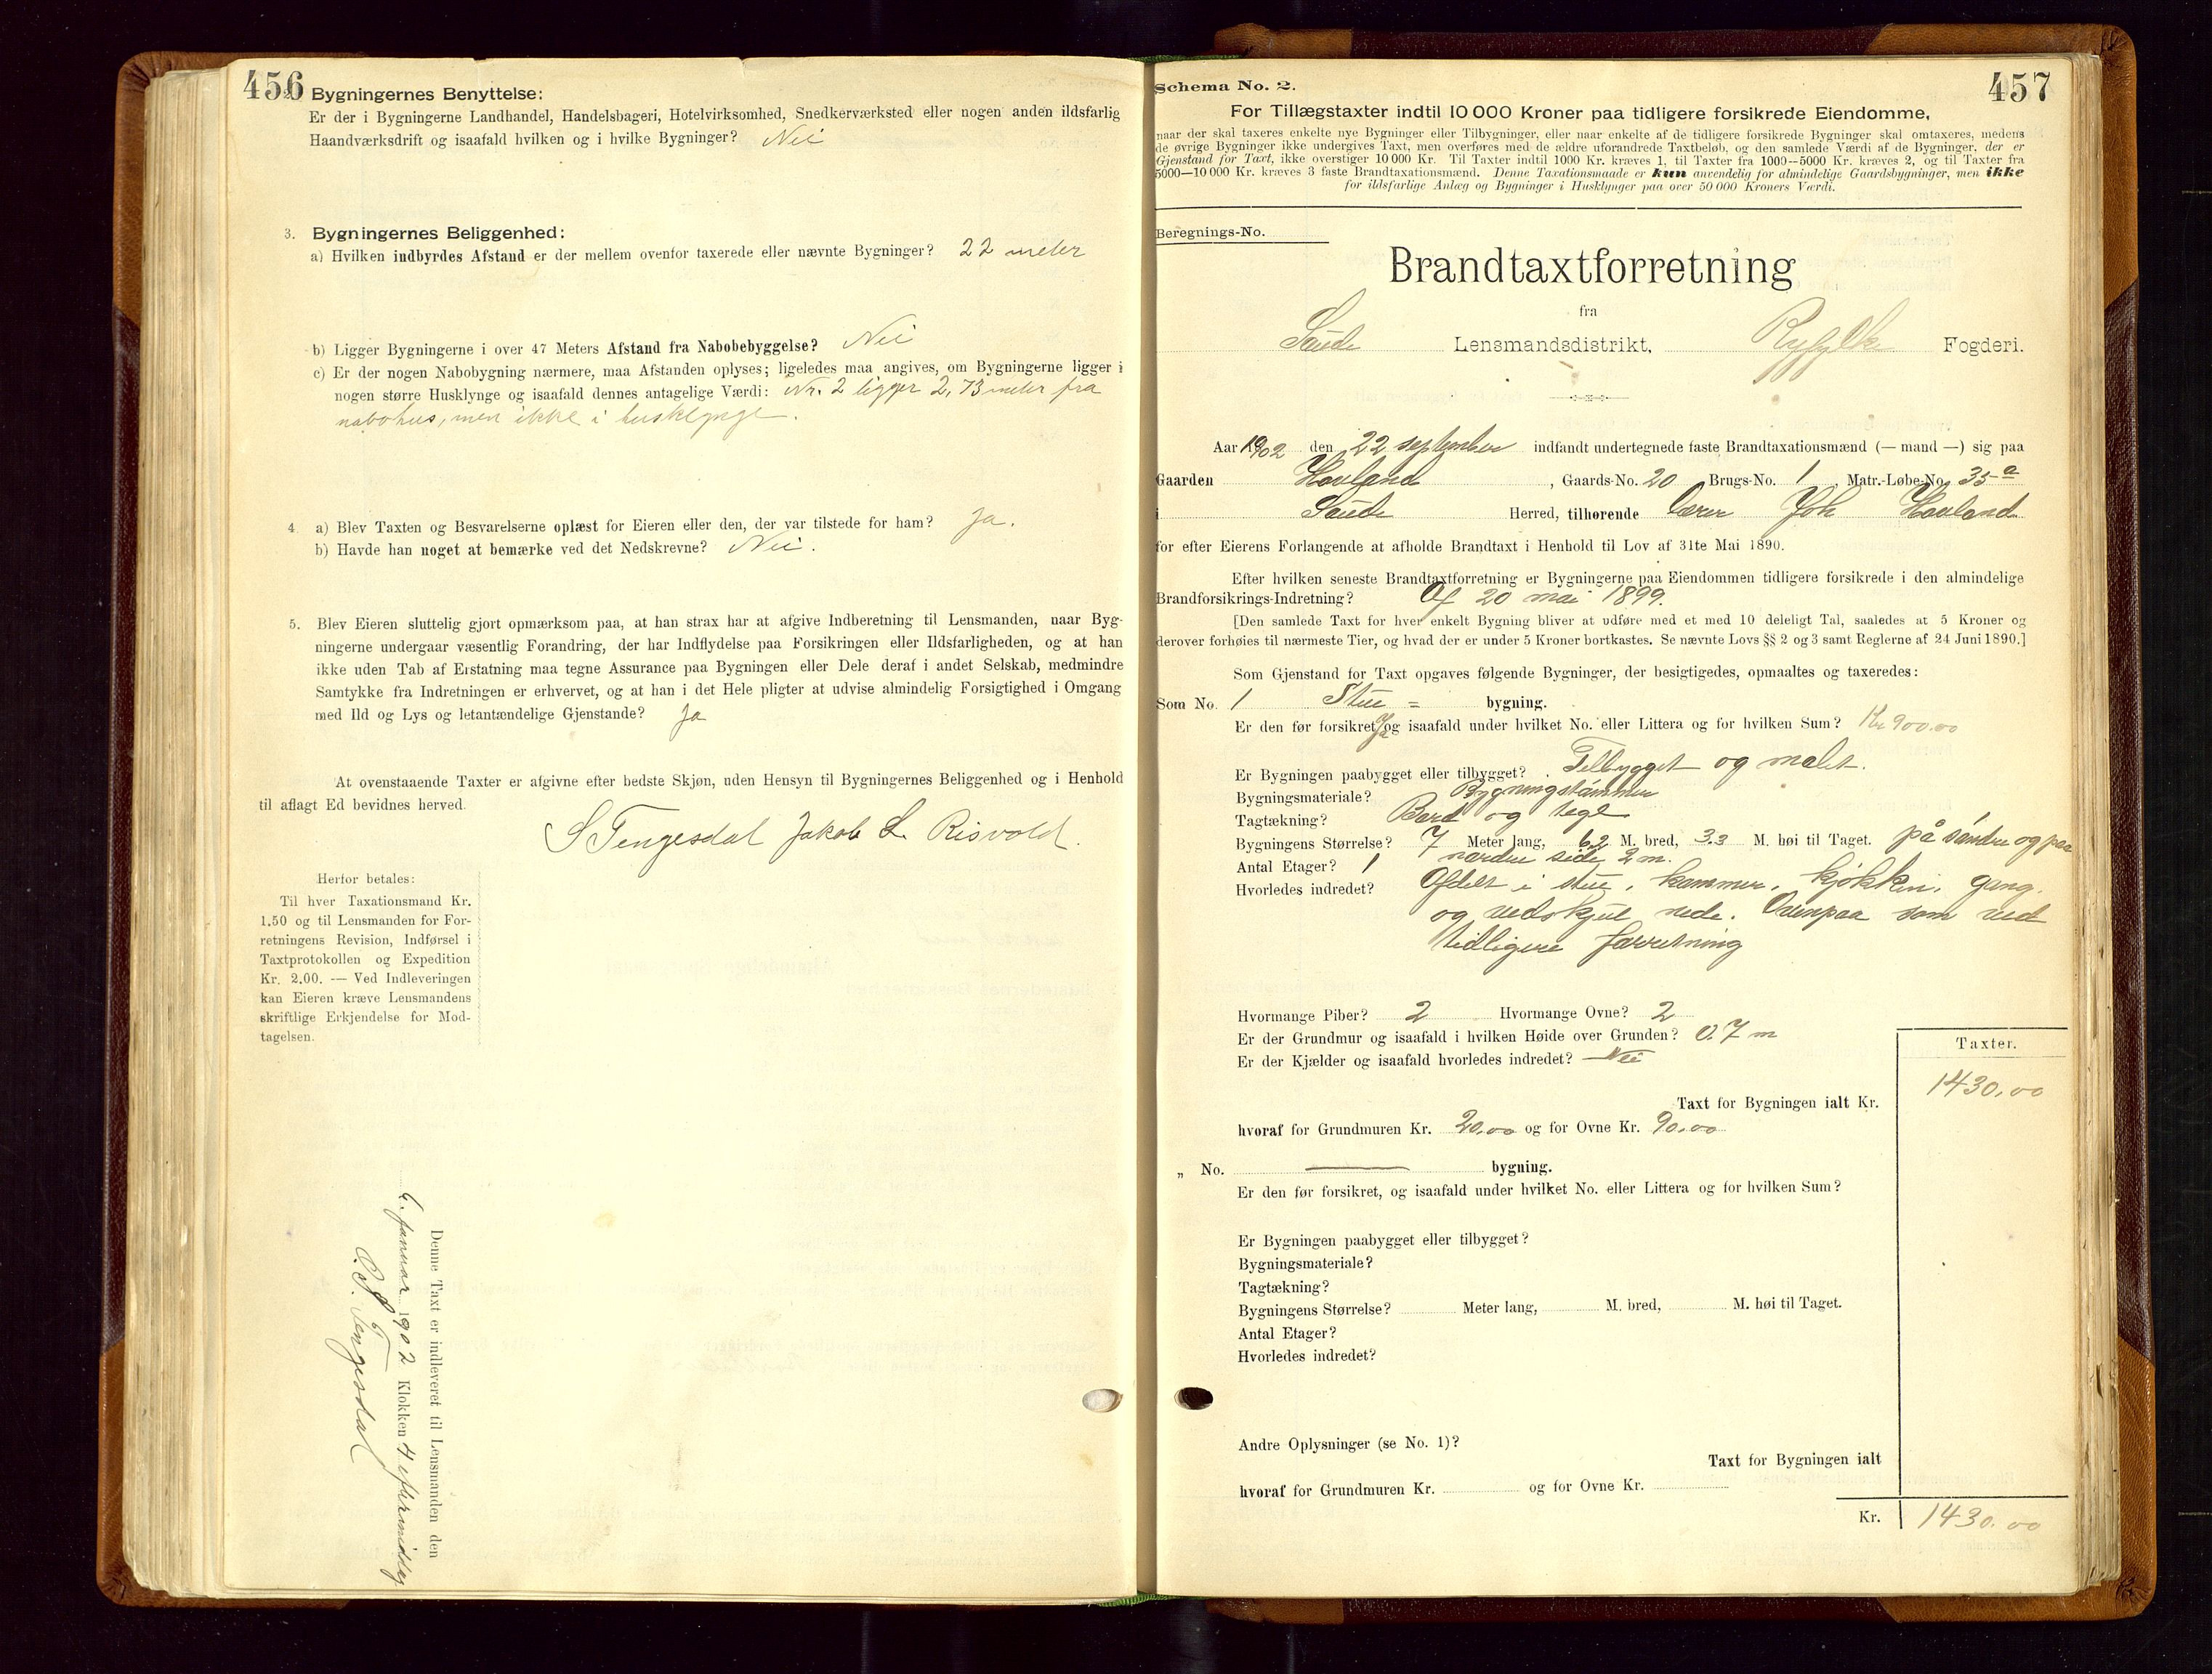 456
Bygningernes Benyttelse:
Er der i Bygningerne Landhandel, Handelsbageri, Hotelvirksomhed, Snedkerværksted eller nogen anden ildsfarlig
Haandværksdrift og isaafald hvilken og i hvilke Bygninger? Nei
3. Bygningernes Beliggenhed:
a) Hvilken indbyrdes Afstand er der mellem ovenfor taxerede eller nævnte Bygninger? 22 meter
b) Ligger Bygningerne i over 47 Meters Afstand fra Nabobebyggelse? Nei
c) Er der nogen Nabobygning nærmere, maa Afstanden oplyses; ligeledes maa angives, om Bygningerne ligger i
nogen større Husklynge og isaafald dennes antagelige Værdi: Nr. 2 ligger 2,73 meter fra
nabohus, men ikke i husklynge.
4. a) Blev Taxten og Besvarelserne oplæst for Eieren eller den, der var tilstede for ham? Ja.
b) Havde han noget at bemærke ved det Nedskrevne? Nei.
5. Blev Eieren sluttelig gjort opmærksom paa, at han strax har at afgive Indberetning til Lensmanden, naar Byg-
ningerne undergaar væsentlig Forandring, der har Indflydelse paa Forsikringen eller Ildsfarligheden, og at han
ikke uden Tab af Erstatning maa tegne Assurance paa Bygningen eller Dele deraf i andet Selskab, medmindre
Samtykke fra Indretningen er erhvervet, og at han i det Hele pligter at udvise almindelig Forsigtighed i Omgang
med Ild og Lys og letantændelige Gjenstande? Ja
At ovenstaaende Taxter er afgivne efter bedste Skjøn, uden Hensyn til Bygningernes Beliggenhed og i Henhold
til aflagt Ed bevidnes herved.
S Tengesdal Jakob L. Risvold.
Herfor betales:
Til hver Taxationsmand Kr.
1.50 og til Lensmanden for For-
retningens Revision, Indførsel i
Taxtprotokollen og Expedition
Kr. 2.00. — Ved Indleveringen
kan Eieren kræve Lensmandens
skriftlige Erkjendelse for Mod-
tagelsen.
Denne Taxt er indleveret til Lensmanden den
6. januar 1902 Klokken 4 eftermiddag
Tengesdal
Schema No. 2.
457
For Tillægstaxter indtil 10 000 Kroner paa tidligere forsikrede Eiendomme,
naar der skal taxeres enkelte nye Bygninger eller Tilbygninger, eller naar enkelte af de tidligere forsikrede Bygninger skal omtaxeres, medens
de øvrige Bygninger ikke undergives Taxt, men overføres med de ældre uforandrede Taxtbeløb, og den samlede Værdi af de Bygninger, der er
Gjenstand for Taxt, ikke overstiger 10 000 Kr. Til Taxter indtil 1000 Kr. kræves 1, til Taxter fra 1000—5000 Kr. kræves 2, og til Taxter fra
5000—10 000 Kr. kræves 3 faste Brandtaxationsmænd. Denne Taxationsmaade er kun anvendelig for almindelige Gaardsbygninger, men ikke
for ildsfarlige Anlæg og Bygninger i Husklynger paa over 50 000 Kroners Værdi.
Beregnings-No.
Brandtaxtforretning
fra
Saude Lensmandsdistrikt, Ryfylke Fogderi.
Aar 1902 den 22 september indfandt undertegnede faste Brandtaxationsmænd (— mand —) sig paa
Gaarden Havland, Gaards-No. 20 Brugs-No. 1, Matr.-Løbe-No. 35a
i Saude Herred, tilhørende lærer Joh Havland
for efter Eierens Forlangende at afholde Brandtaxt i Henhold til Lov af 31te Mai 1890.
Efter hvilken seneste Brandtaxtforretning er Bygningerne paa Eiendommen tidligere forsikrede i den almindelige
Brandforsikrings-Indretning? Af 20 mai 1899.
[Den samlede Taxt for hver enkelt Bygning bliver at udføre med et med 10 deleligt Tal, saaledes at 5 Kroner og
derover forhøies til nærmeste Tier, og hvad der er under 5 Kroner bortkastes. Se nævnte Lovs §§ 2 og 3 samt Reglerne af 24 Juni 1890.]
Som Gjenstand for Taxt opgaves følgende Bygninger, der besigtigedes, opmaaltes og taxeredes:
Som No. 1 Stue = bygning.
Er den før forsikret, Ja og isaafald under hvilket No. eller Littera og for hvilken Sum? Kr 900.00
Er Bygningen paabygget eller tilbygget? Tilbygget og malet.
Bygningsmateriale? Bygningstømmer
Tagtækning? Bord og tegl
Bygningens Størrelse? 7 Meter lang, 6.2 M. bred, 3.3 M. høi til Taget. på søndre og paa
Antal Etager? 1 nordre side 2 m.
Hvorledes indredet? Afdelt i stue, kammer, kjøkken, gang
og vedskjul nede. Ovenpaa som ved
tidligere forretning
Hvormange Piber? 2 Hvormange Ovne? 2
Er der Grundmur og isaafald i hvilken Høide over Grunden? 0.7 m
Er der Kjælder og isaafald hvorledes indredet? Nei
Taxter.
Taxt for Bygningen ialt Kr. 1430.00
hvoraf for Grundmuren Kr. 20.00 og for Ovne Kr. 90.00
„ No. bygning.
Er den før forsikret, og isaafald under hvilket No. eller Littera og for hvilken Sum?
Er Bygningen paabygget eller tilbygget?
Bygningsmateriale?
Tagtækning?
Bygningens Størrelse? Meter lang, M. bred, M. høi til Taget.
Antal Etager?
Hvorledes indredet?
Andre Oplysninger (se No. 1)?
Taxt for Bygningen ialt
hvoraf for Grundmuren Kr. og for Ovne Kr.
Kr. 1430.00